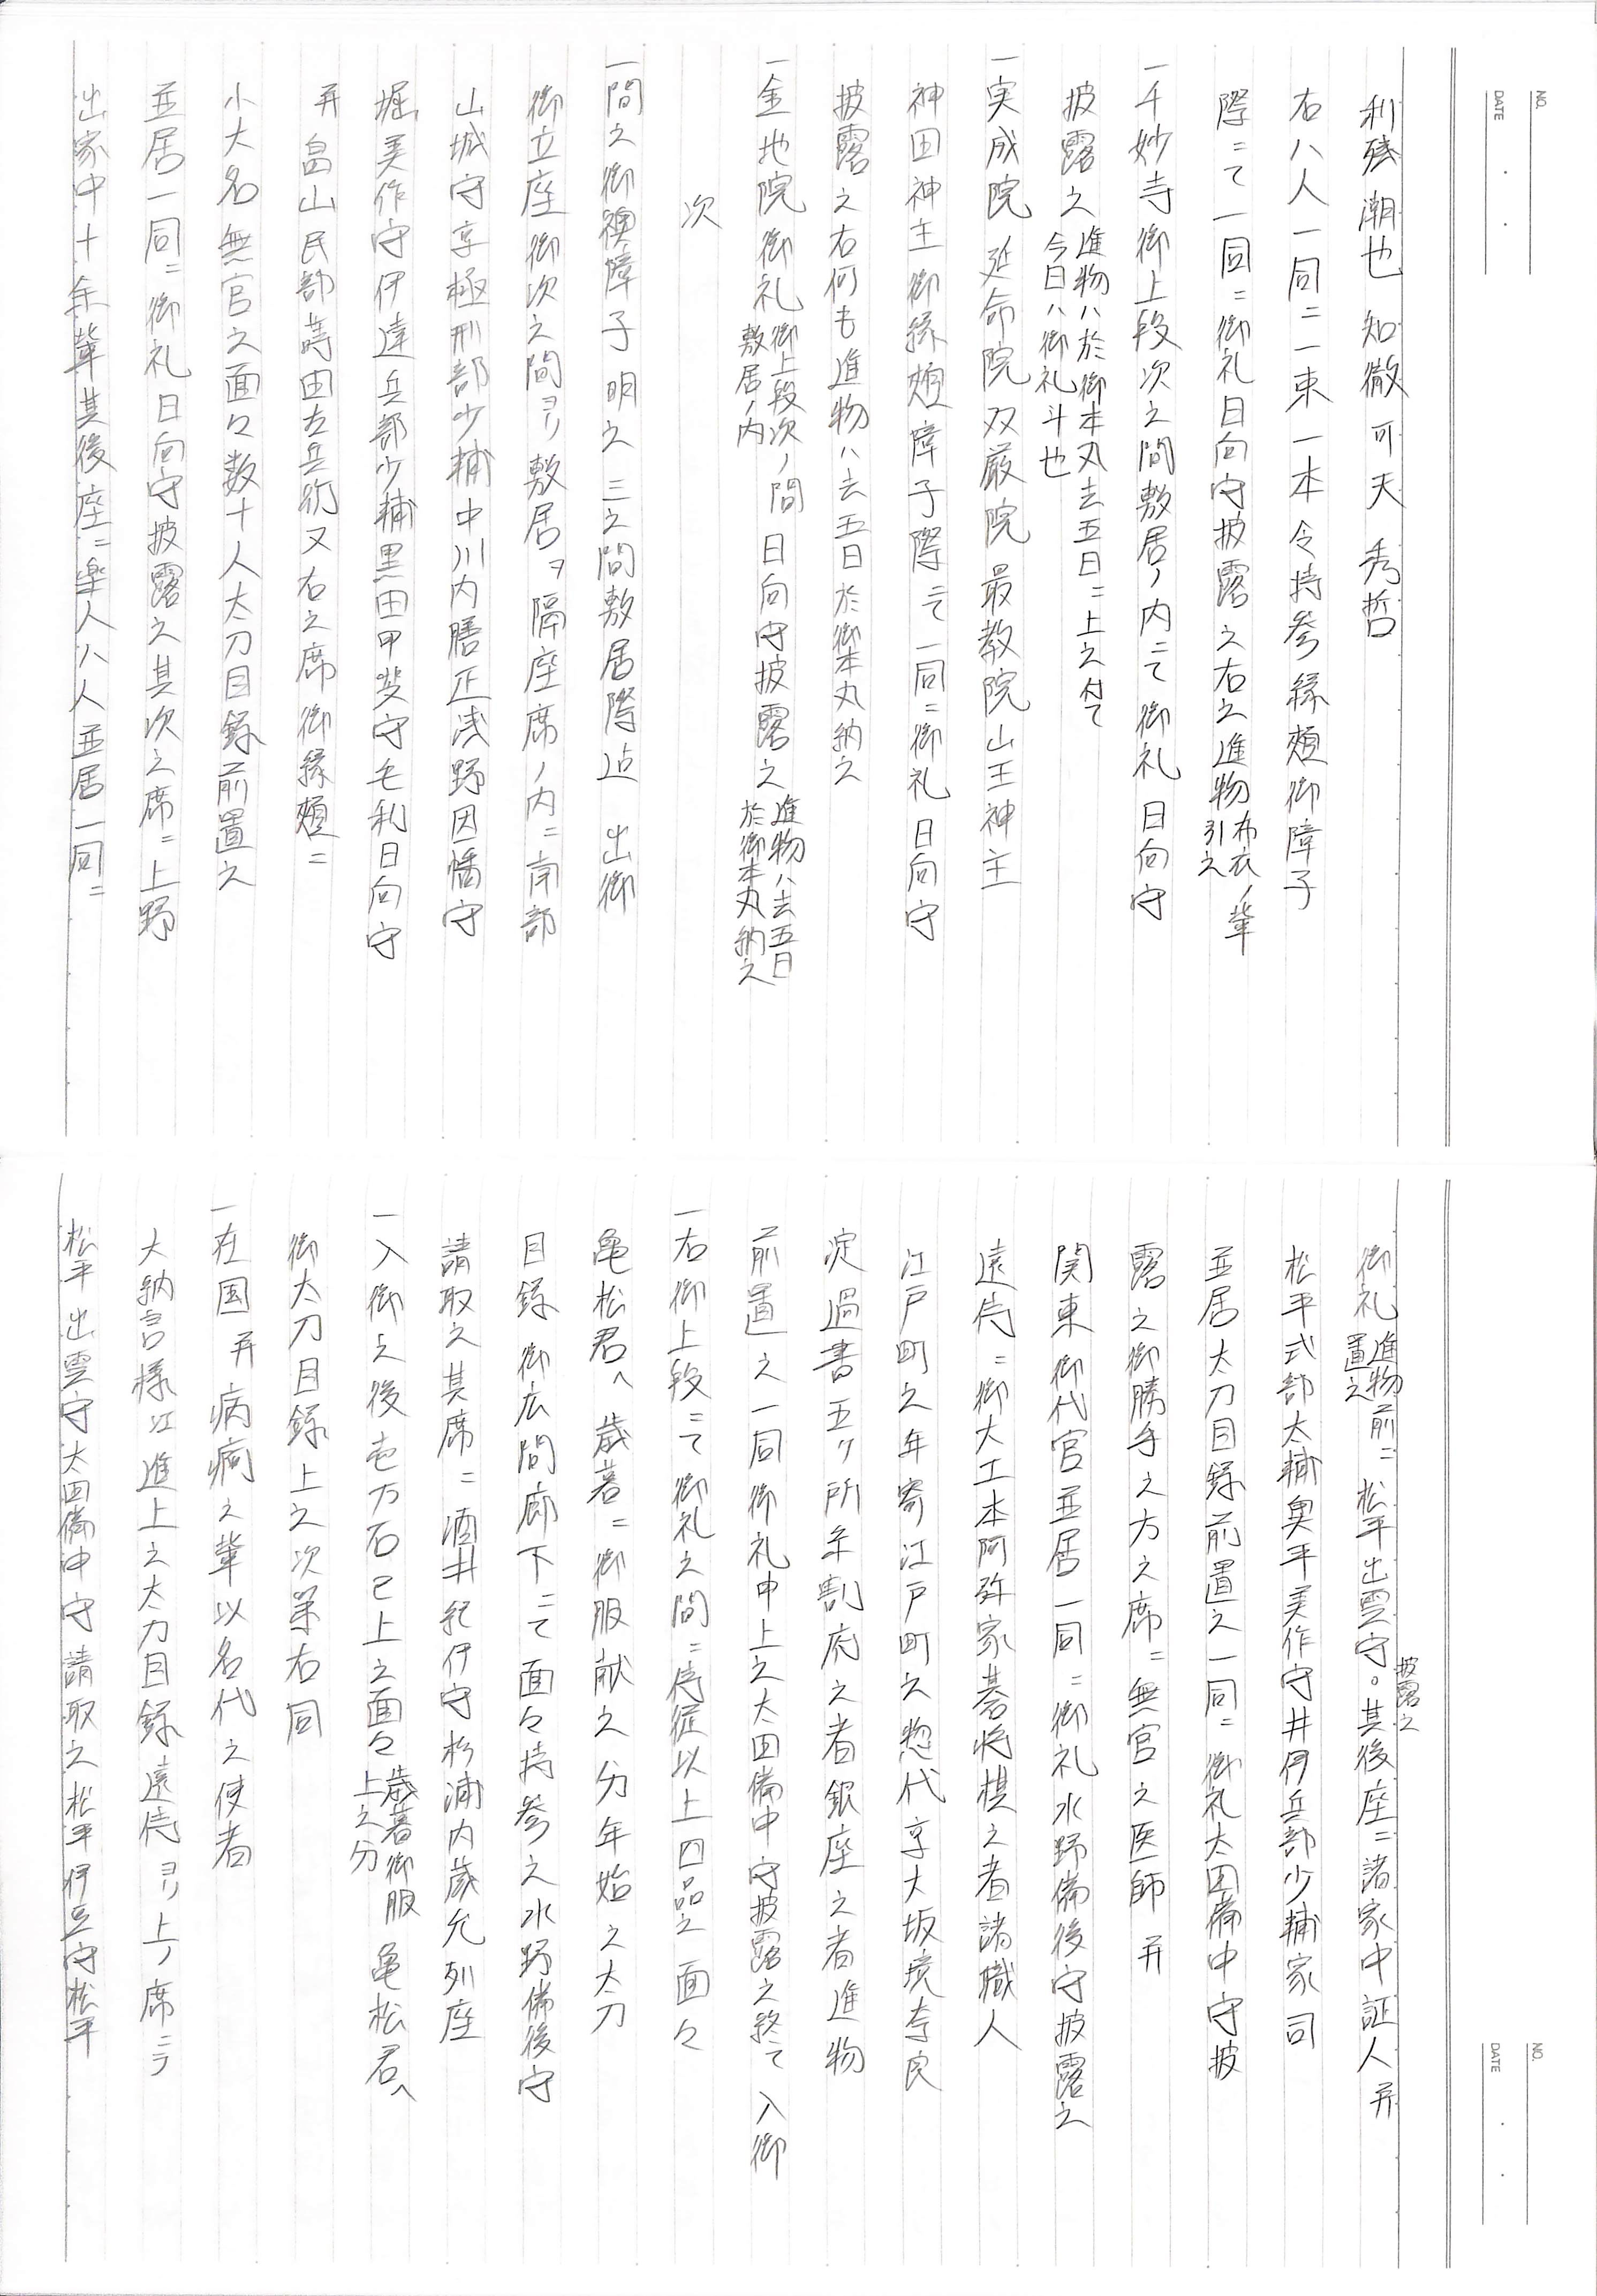 NO.
DATE
利残 潮也 知徹 可天 秀哲
右八人一同ニ一束一本令持参縁頬御障子
際ニて一同ニ御礼日向守披露之右之進物布衣ノ輩引之
一千妙寺御上段次之間敷居ノ内ニて御礼日向守
披露之進物ハ於御本丸去五日ニ上之付て今日ハ御礼斗也
一実成院 延命院 双厳院 最教院 山王神主
神田神主御縁頬障子際ニて一同ニ御礼日向守
披露之右何も進物ハ去五日於御本丸納之
一金地院御礼御上段次ノ間敷居ノ内日向守披露之進物ハ去五日於御本丸納之
次
一間之御襖障子明之三之間敷居際迠 出御
御立座御次之間ヨリ敷居ヲ隔座席ノ内ニ南部
山城守京極刑部少輔中川内膳正浅野因幡守
堀美作守伊達兵部少輔黒田甲斐守毛利日向守
并畠山民部蒔田左兵衛又右之席御縁頬ニ
小大名無官之面々数十人太刀目録前置之
並居一同ニ御礼日向守披露之其次之席ニ上野
出家中十余輩其後座ニ楽人八人並居一同ニ
NO.
DATE
御礼進物前ニ置之松平出雲守。披露之其後座ニ諸家中証人并
松平式部太輔奥平美作守井伊兵部少輔家司
並居太刀目録前置之一同ニ御礼太田備中守披
露之御勝手之方之席ニ無官之医師并
関東御代官並居一同ニ御礼水野備後守披露之
遠侍ニ御大工本阿弥家碁将棋之者諸職人
江戸町之年寄江戸町之惣代京大坂境奈良
淀過書五ヶ所糸割府之者銀座之者進物
前置之一同御礼申上之太田備中守披露之終て 入御
一右御上段ニて御礼之間ニ侍従以上四品之面々
亀松君へ歳暮ニ御服献之分年始之太刀
目録御広間廊下ニて面々持参之水野備後守
請取之其席ニ酒井紀伊守杉浦内蔵允列座
一入御之後壱万石已上之面々歳暮御服上之分亀松君へ
御太刀目録上之次第右同
一在国并病痾之輩以名代之使者
大納言様江進上之太刀目録遠侍ヨリ上ノ席ニテ
松平出雲守太田備中守請取之松平伊豆守松平